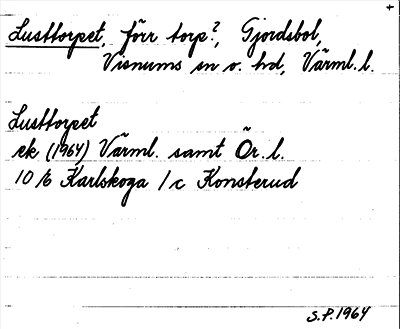 +
Lusttorpet, förr torp?, Gjordsbol,
Visnums sn o. hd, Värml. l.
Lusttorpet
ek (1964) Värml. samt Ör. l.
10 E Karlskoga 1c Konsterud
S.P. 1964